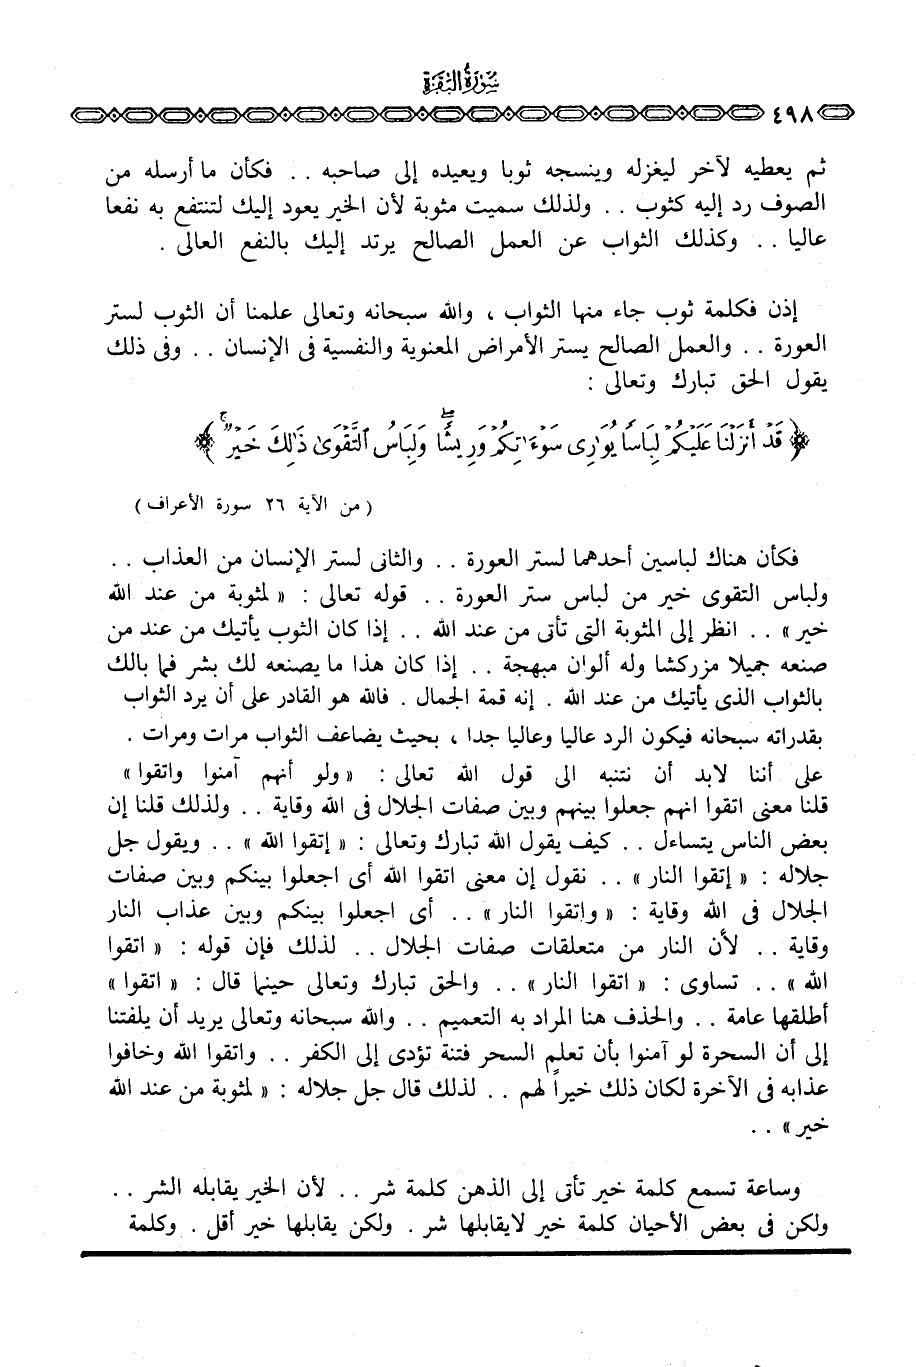 سورة البقرة
٤٩٨
ثم يعطيه لآخر ليغزله وينسجه ثوبا ويعيده إلى صاحبه .. فكأن ما أرسله من
الصوف رد إليه كثوب .. ولذلك سميت مثوبة لأن الخير يعود إليك لتنتفع به نفعا
عاليا .. وكذلك الثواب عن العمل الصالح يرتد إليك بالنفع العالى .
إذن فكلمة ثوب جاء منها الثواب ، والله سبحانه وتعالى علمنا أن الثوب لستر
العورة .. والعمل الصالح يستر الأمراض المعنوية والنفسية فى الإنسان .. وفى ذلك
يقول الحق تبارك وتعالى :
﴿ قَدْ أَنزَلْنَا عَلَيْكُمْ لِبَاسًا يُوَٰرِى سَوْءَٰتِكُمْ وَرِيشًا ۖ وَلِبَاسُ ٱلتَّقْوَىٰ ذَٰلِكَ خَيْرٌ ۚ ﴾
( من الآية ٢٦ سورة الأعراف )
فكأن هناك لباسين أحدهما لستر العورة .. والثانى لستر الإنسان من العذاب ..
ولباس التقوى خير من لباس ستر العورة .. قوله تعالى : « لمثوبة من عند الله
خير » .. انظر إلى المثوبة التى تأتى من عند الله .. إذا كان الثوب يأتيك من عند من
صنعه جميلا مزركشا وله ألوان مبهجة .. إذا كان هذا ما يصنعه لك بشر فما بالك
بالثواب الذى يأتيك من عند الله . إنه قمة الجمال . فالله هو القادر على أن يرد الثواب
بقدراته سبحانه فيكون الرد عاليا وعاليا جدا ، بحيث يضاعف الثواب مرات ومرات .
على أننا لابد أن نتنبه الى قول الله تعالى : « ولو أنهم آمنوا واتقوا »
قلنا معنى اتقوا انهم جعلوا بينهم وبين صفات الجلال فى الله وقاية .. ولذلك قلنا إن
بعض الناس يتساءل .. كيف يقول الله تبارك وتعالى : « إتقوا الله » .. ويقول جل
جلاله : « إتقوا النار » .. نقول إن معنى اتقوا الله أى اجعلوا بينكم وبين صفات
الجلال فى الله وقاية : « واتقوا النار » .. أى اجعلوا بينكم وبين عذاب النار
وقاية .. لأن النار من متعلقات صفات الجلال .. لذلك فإن قوله : « اتقوا
الله » .. تساوى : « اتقوا النار » .. والحق تبارك وتعالى حينما قال : « اتقوا »
أطلقها عامة .. والحذف هنا المراد به التعميم .. والله سبحانه وتعالى يريد أن يلفتنا
إلى أن السحرة لو آمنوا بأن تعلم السحر فتنة تؤدى إلى الكفر .. واتقوا الله وخافوا
عذابه فى الآخرة لكان ذلك خيراً لهم .. لذلك قال جل جلاله : « لمثوبة من عند الله
خير » ..
وساعة تسمع كلمة خير تأتى إلى الذهن كلمة شر .. لأن الخير يقابله الشر ..
ولكن فى بعض الأحيان كلمة خير لايقابلها شر . ولكن يقابلها خير أقل . وكلمة